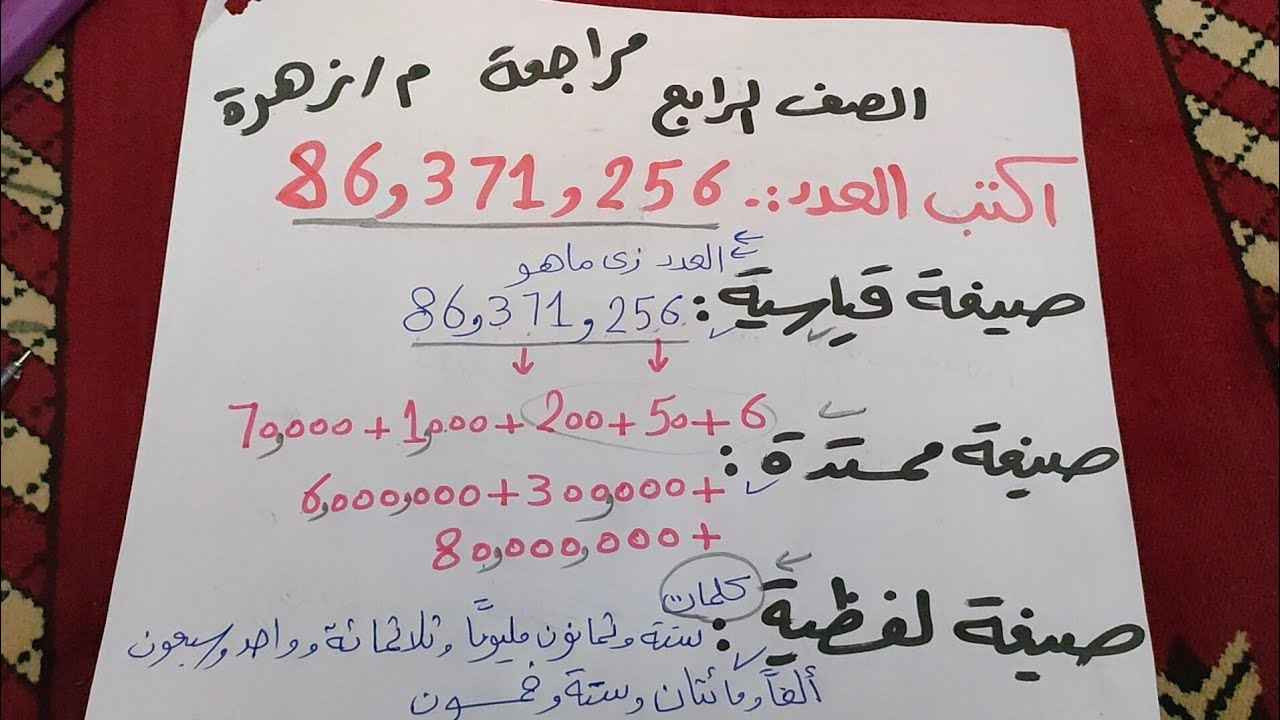 الصف الرابع مراجعة م / زهرة
اكتب العدد:. 86,371,256
العدد زى ماهو
صيغة قياسية: 86,371,256
70,000 + 1,000 + 200 + 50 + 6
صيغة ممتدة:
6,000,000 + 300,000 +
80,000,000 +
كلمات
صيغة لفظية: ستة وثمانون مليونًا وثلاثمائة وواحد وسبعون
ألفاً ومائتان وستة وخمسون